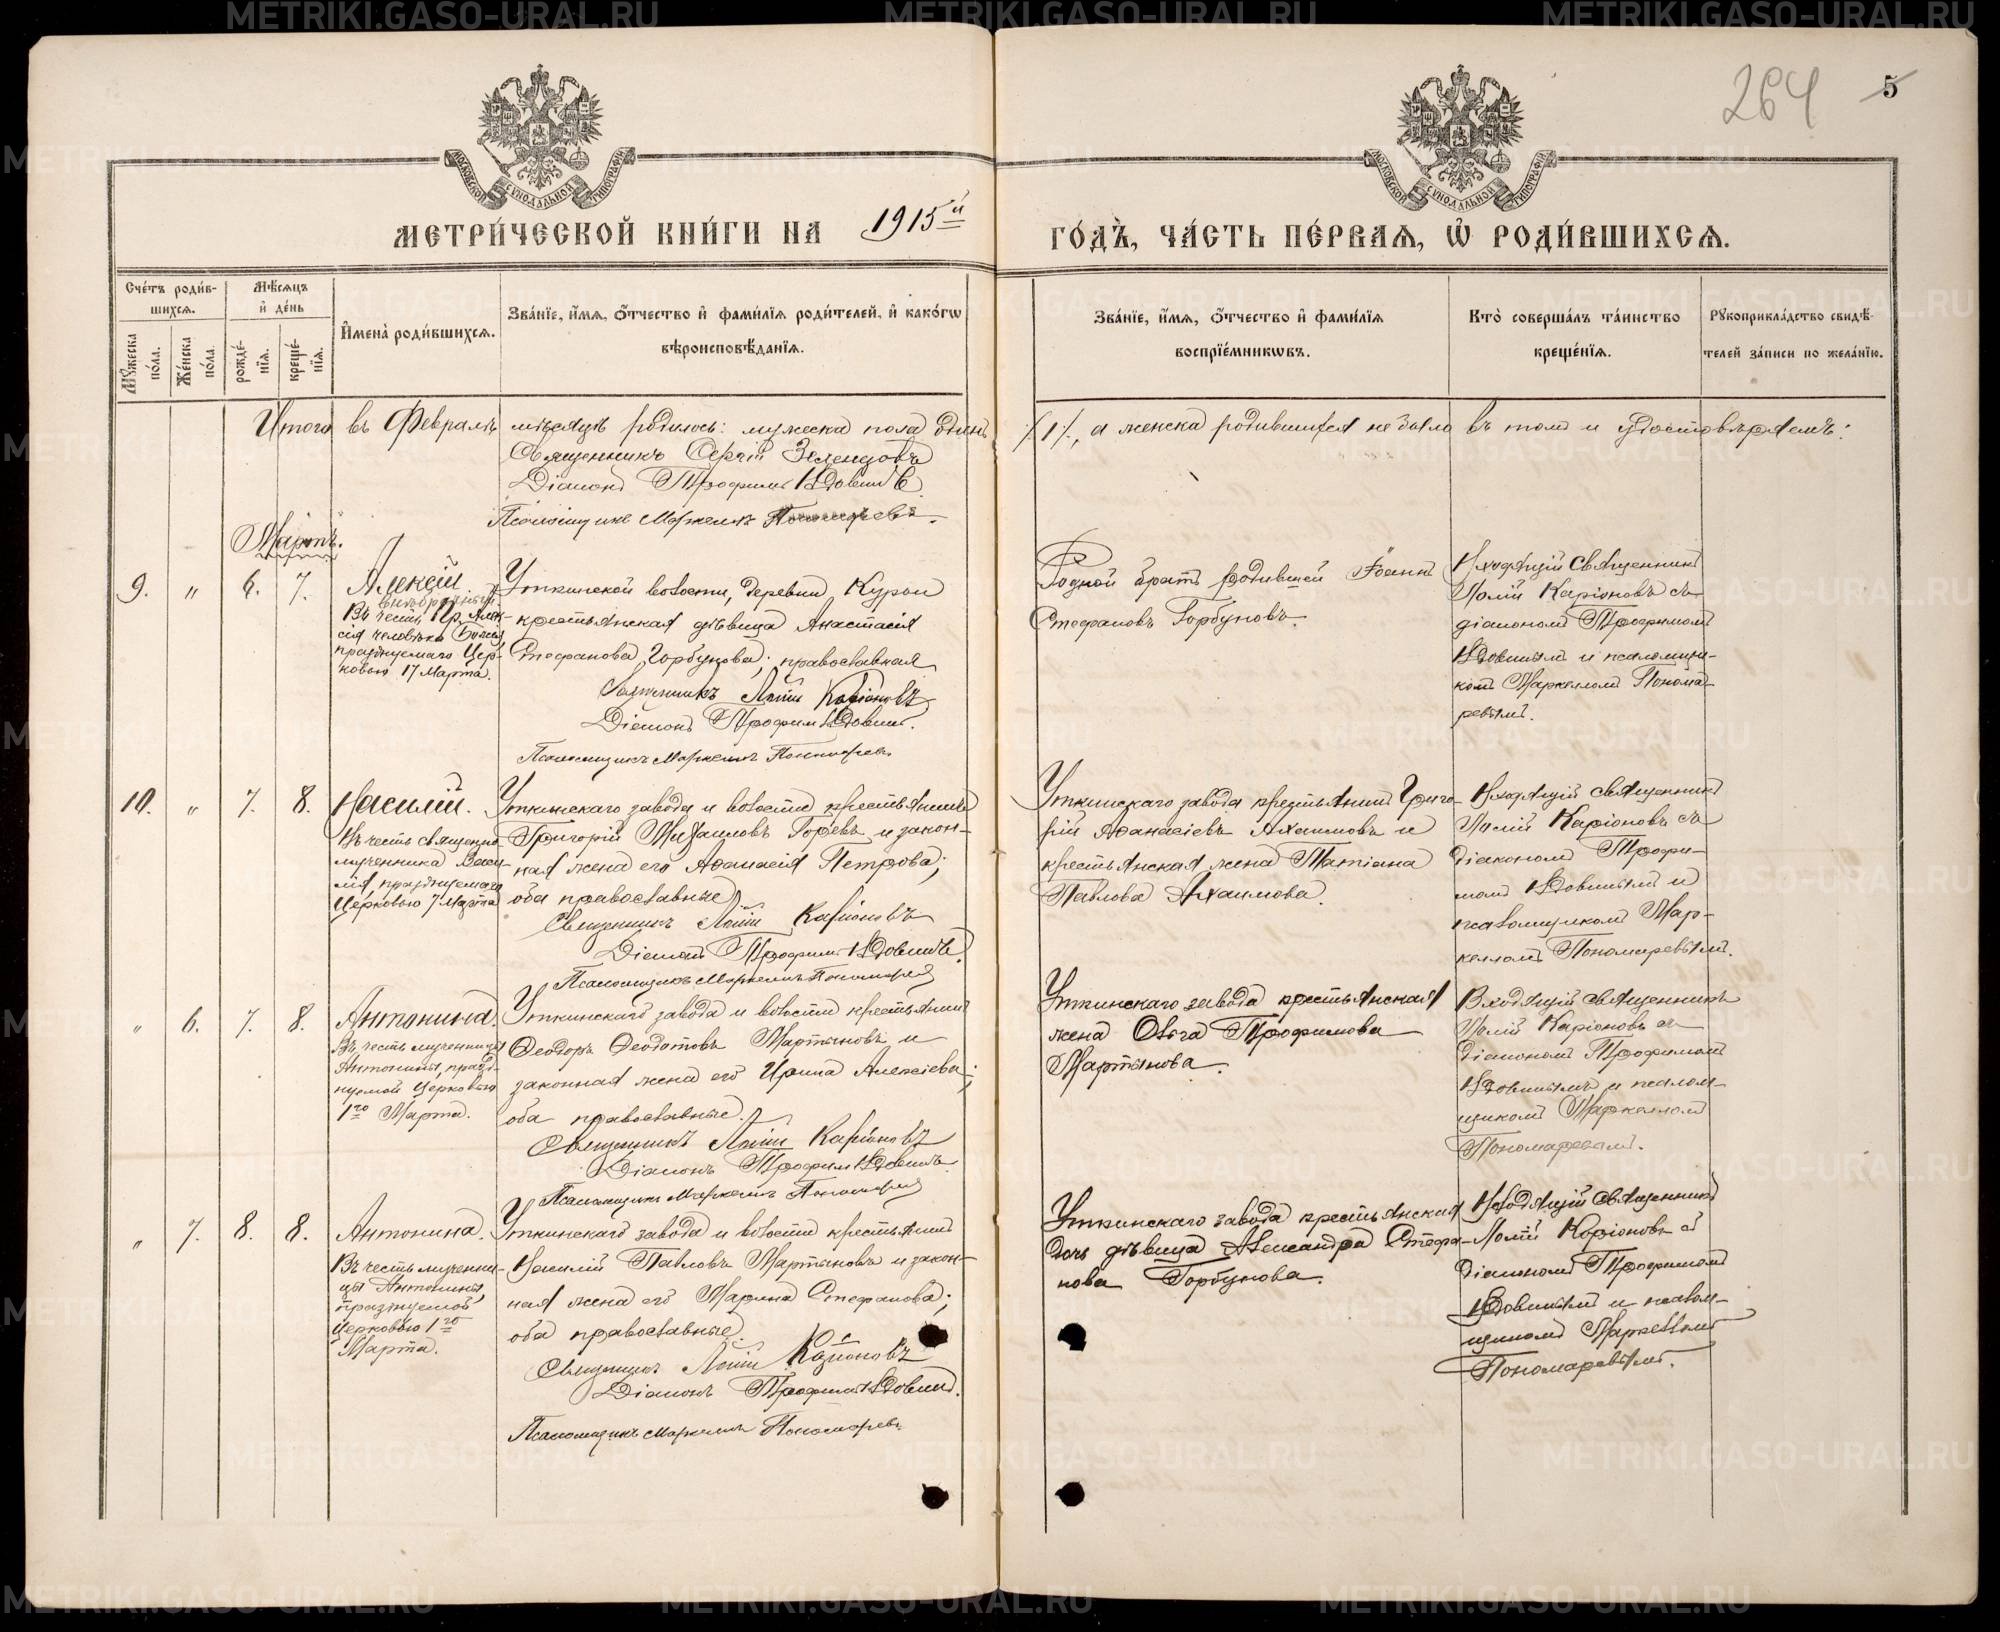 264 5
МОСКОВСКОЙ СѴНОДАЛЬНОЙ ТИПОГРАФІИ
МОСКОВСКОЙ СѴНОДАЛЬНОЙ ТИПОГРАФІИ
МЕТРИ́ЧЕСКОЙ КНИ́ГИ НА 1915й ГО́ДЪ, ЧА́СТЬ ПЕ́РВАЯ, Ѡ҆ РОДИ́ВШИХСѦ.
Сче́тъ роди́в-
шихсѧ.
Мꙋ́жеска по́ла.
Же́нска по́ла.
Мѣ́сѧцъ
и҆ де́нь
рожде́-
нїѧ.
креще́-
нїѧ.
И҆мена̀ роди́вшихсѧ.
Зва́нїе, и҆́мѧ, ѻ҆́тчество и҆ фами́лїѧ роди́телей, и҆ како́гѡ
вѣроисповѣ́данїѧ.
Зва́нїе, и҆́мѧ, ѻ҆́тчество и҆ фами́лїѧ
воспрїе́мникѡвъ.
Кто̀ соверша́лъ та́инство
креще́нїѧ.
Рꙋкоприкла́дство свидѣ́-
телей за́писи по жела́нїю.
Итого въ Февралѣ мѣсяцѣ родилось: мужеска пола одинъ /1/, а женска родившихся не было въ томъ и удостовѣряемъ:
Священникъ Сергій Зеленцовъ
Діаконъ Трофимъ Вдовинъ
Псаломщикъ Маркеллъ Пономаревъ.
Мартъ.
9. " 6. 7.
Алексій
Въ честь Пр. Алек-
сія человѣка Божія
празднуемаго Цер-
ковью 17 Марта.
Уткинской волости, деревни Курьи
крестьянская дѣвица Анастасія
Стефанова Горбунова; православная
Священникъ Каріоновъ
Діаконъ Трофимъ Вдовинъ.
Псаломщикъ Маркеллъ Пономаревъ
Родной братъ родившей Іоаннъ
Стефановъ Горбуновъ.
Входящій Священникъ
Каріоновъ съ
діакономъ Трофимомъ
Вдовинымъ и псаломщи-
комъ Маркелломъ Понома-
ревымъ.
10. " 7. 8.
Василій.
Въ честь священно-
мученника Васи-
лія, празднуемаго
Церковью 7 Марта
Уткинскаго завода и волости крестьянинъ
Григорій Михаиловъ Горевъ и закон-
ная жена его Афанасія Петрова;
оба православные
Священникъ Каріоновъ
Діаконъ Трофимъ Вдовинъ.
Псаломщикъ Маркеллъ Пономаревъ
Уткинскаго завода крестьянинъ Григо-
рій Афанасіевъ и
крестьянская жена Татіана
Павлова
Входящій священникъ
Каріоновъ съ
діакономъ Трофи-
момъ Вдовинымъ и
псаломщикомъ Мар-
келломъ Пономаревымъ.
" 6. 7. 8.
Антонина.
Въ честь мученницы
Антонины, празд-
нуемой Церковью
1го Марта.
Уткинскаго завода и волости крестьянинъ
Феодоръ Феодотовъ Мартьяновъ и
законная жена его Ирина Алексіева;
оба православные.
Священникъ Каріоновъ
Діаконъ Трофимъ Вдовинъ
Псаломщикъ Маркеллъ Пономаревъ
Уткинскаго завода крестьянская
жена Ольга Трофимова
Мартьянова.
Входящій священникъ
Каріоновъ съ
Діакономъ Трофимомъ
Вдовинымъ и псалом-
щикомъ Маркелломъ
Пономаревымъ.
" 7. 8. 8.
Антонина.
Въ честь мученни-
цы Антонины,
празднуемой
Церковью 1го
Марта.
Уткинскаго завода и волости крестьянинъ
Василій Павловъ Мартьяновъ и закон-
ная жена его Марина Стефанова;
оба православные.
Священникъ Каріоновъ
Діаконъ Трофимъ Вдовинъ.
Псаломщикъ Маркеллъ Пономаревъ
Уткинскаго завода крестьянская
дочь дѣвица Александра Стефа-
нова Горбунова.
Входящій священникъ
Каріоновъ съ
Діакономъ Трофимомъ
Вдовинымъ и псалом-
щикомъ Маркелломъ
Пономаревымъ.
METRIKI.GASO-URAL.RU